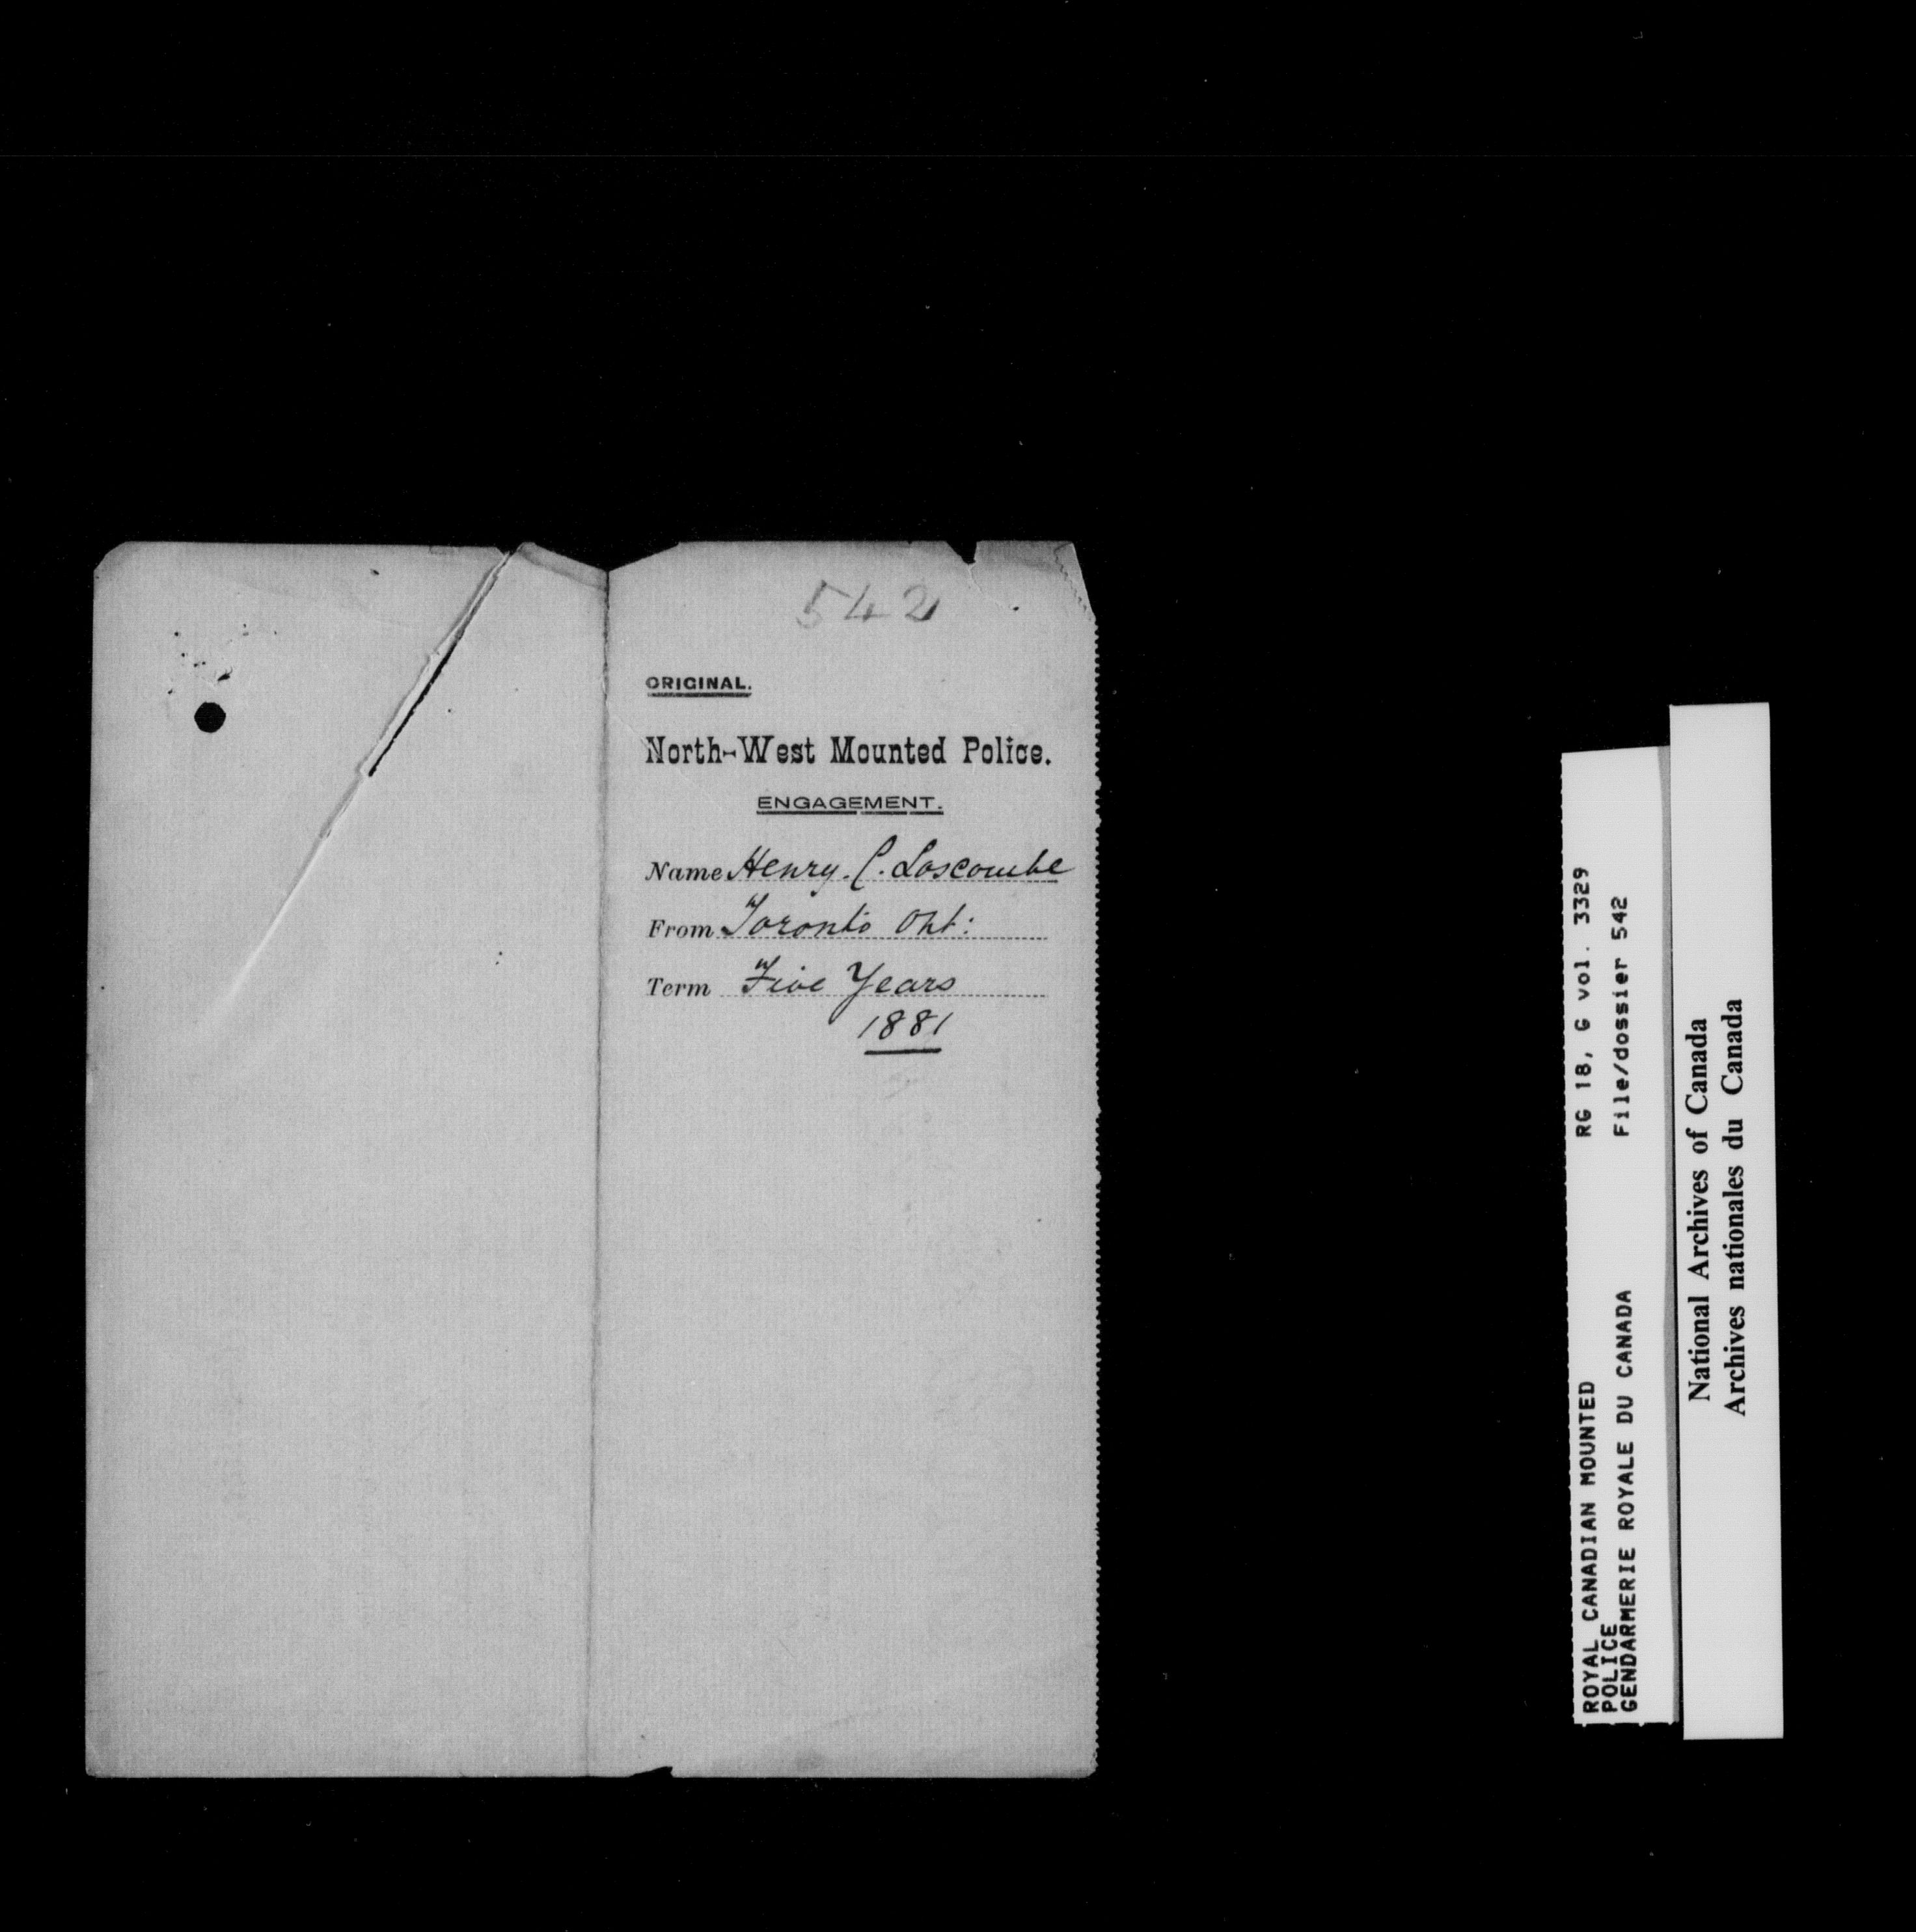 542
ORIGINAL.
North-West Mounted Police.
ENGAGEMENT.
Name Henry. C. Loscombe
From Toronto Ont:
Term Five Years
1881
ROYAL CANADIAN MOUNTED RG 18, G vol. 3329
POLICE
GENDARMERIE ROYALE DU CANADA File/dossier 542
National Archives of Canada
Archives nationales du Canada